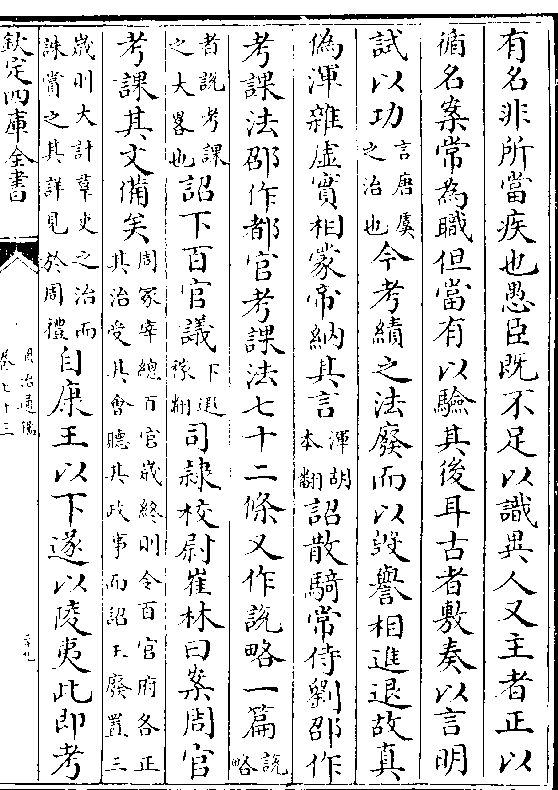 有名非所當疾也愚臣既不足以識異人又主者正以
循名案常為職但當有以驗其後耳古者敷奏以言明
試以功言唐虞之治也今考績之法廢而以毀譽相進退故真
偽渾雜虛實相蒙帝納其言渾胡本翻詔散騎常侍劉邵作
考課法邵作都官考課法七十二條又作說略一篇說略
者說考課之大畧也詔下百官議下遐稼翻司隸校尉崔林曰案周官
考課其文備矣周冢宰總百官歲終則令百官府各正其治受其會聽其政事而詔王廢置三
歲則大計羣吏之治而誅賞之其詳見於周禮自康王以下遂以陵夷此即考
欽定四庫全書
資治通鑑
卷七十三